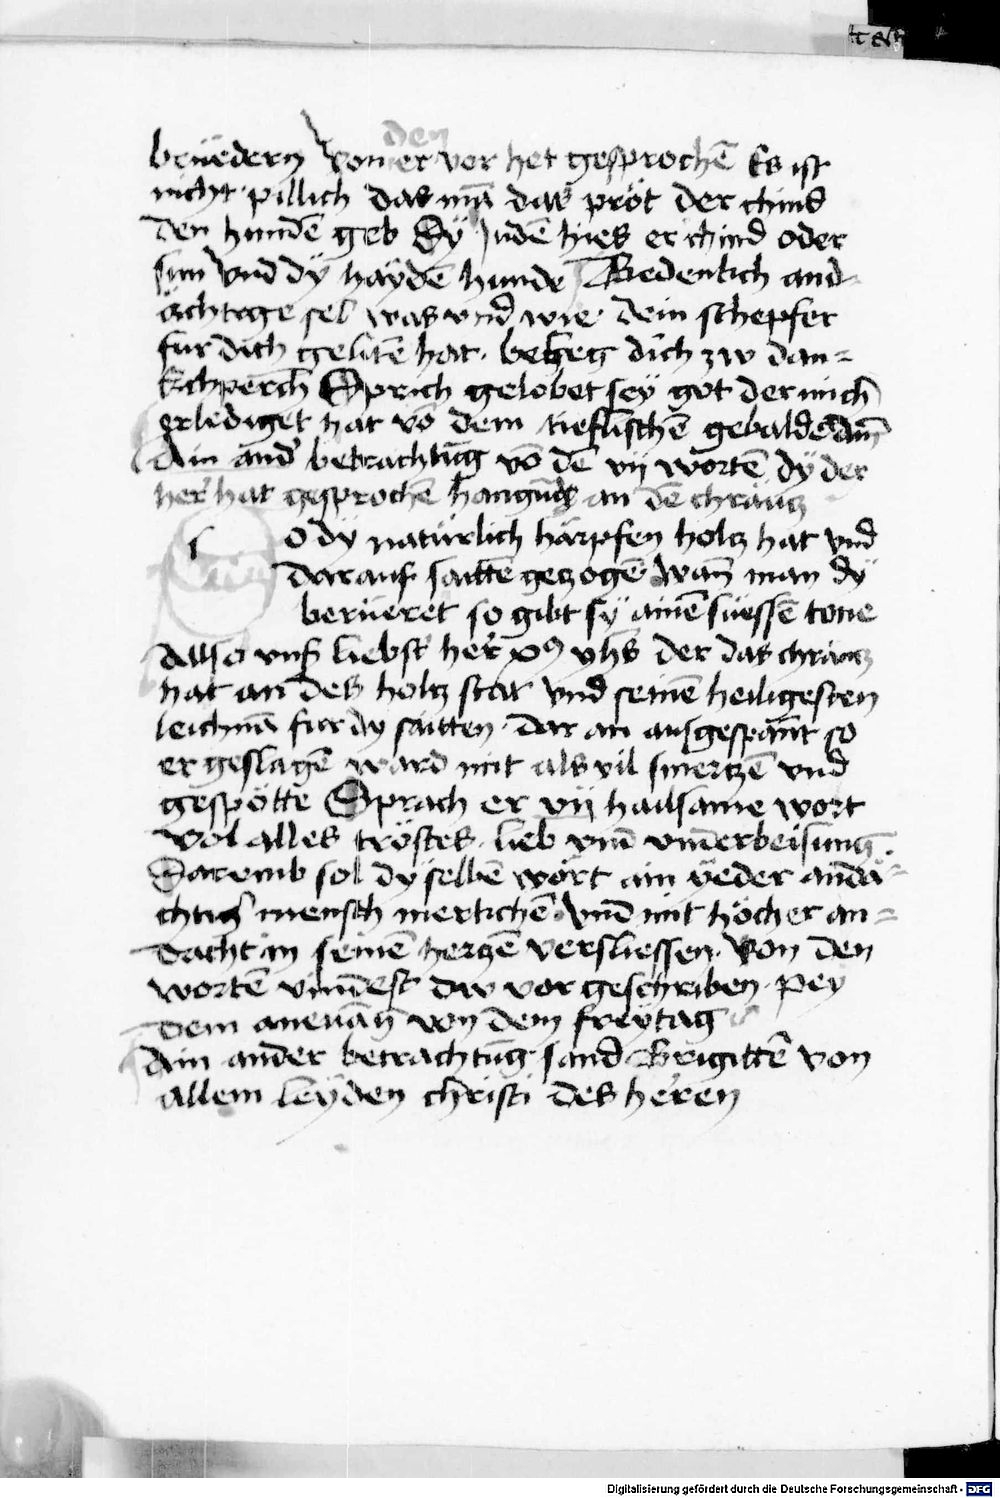 den
brüedern Vomer vor het gesprochē Es ist
nicht pillich das mā das pröt der chind
den hundē geb Dÿ Judē hies er chind oder
sun vnd dÿ haÿdē hunde Bedenkch and-
ächtige sel was vnd wie dein schepfer
fur dich gelitē hat. beczeg dich zw dan=
kchperch Sprich gelobet seÿ got der mich
erlediget hat vō dem tieflischē gebalde Amē
Ain and' betrachtūg vō dē vij wortē dÿ der
her' hat gesprochē hangūd an dē chräucz
S
o dÿ natürlich härpfen holcz hat vnd
darauf saittē geczogē wañ man dÿ
berüeret so gibt sÿ ainē süessē tone
Allso vnß liebst' her' xp̄s yhs der das chräucz
hat an des holcz stat vnd seinē heiligesten
leichnā fur dÿ saitten. dar an aufgespāñt so
er geslagē ward mit als vil smerczē vnd
gespötte Sprach er vij hailsame wort
vol alles tröstes. lieb vnd vnderbeisung.
Darumb sol dÿ selbē wört ain ÿeder andä-
chtig' mensch merkchē vnd mit höcher an=
dacht in seinē herczē versliessen. Von den
wortē vindest dw vor geschriben. pey
dem anevāg von dem freÿtag
Ain ander betrachtūg sand Brigittē von
allem leÿden christi des heren
Digitalisierung gefördert durch die Deutsche Forschungsgemeinschaft - DFG